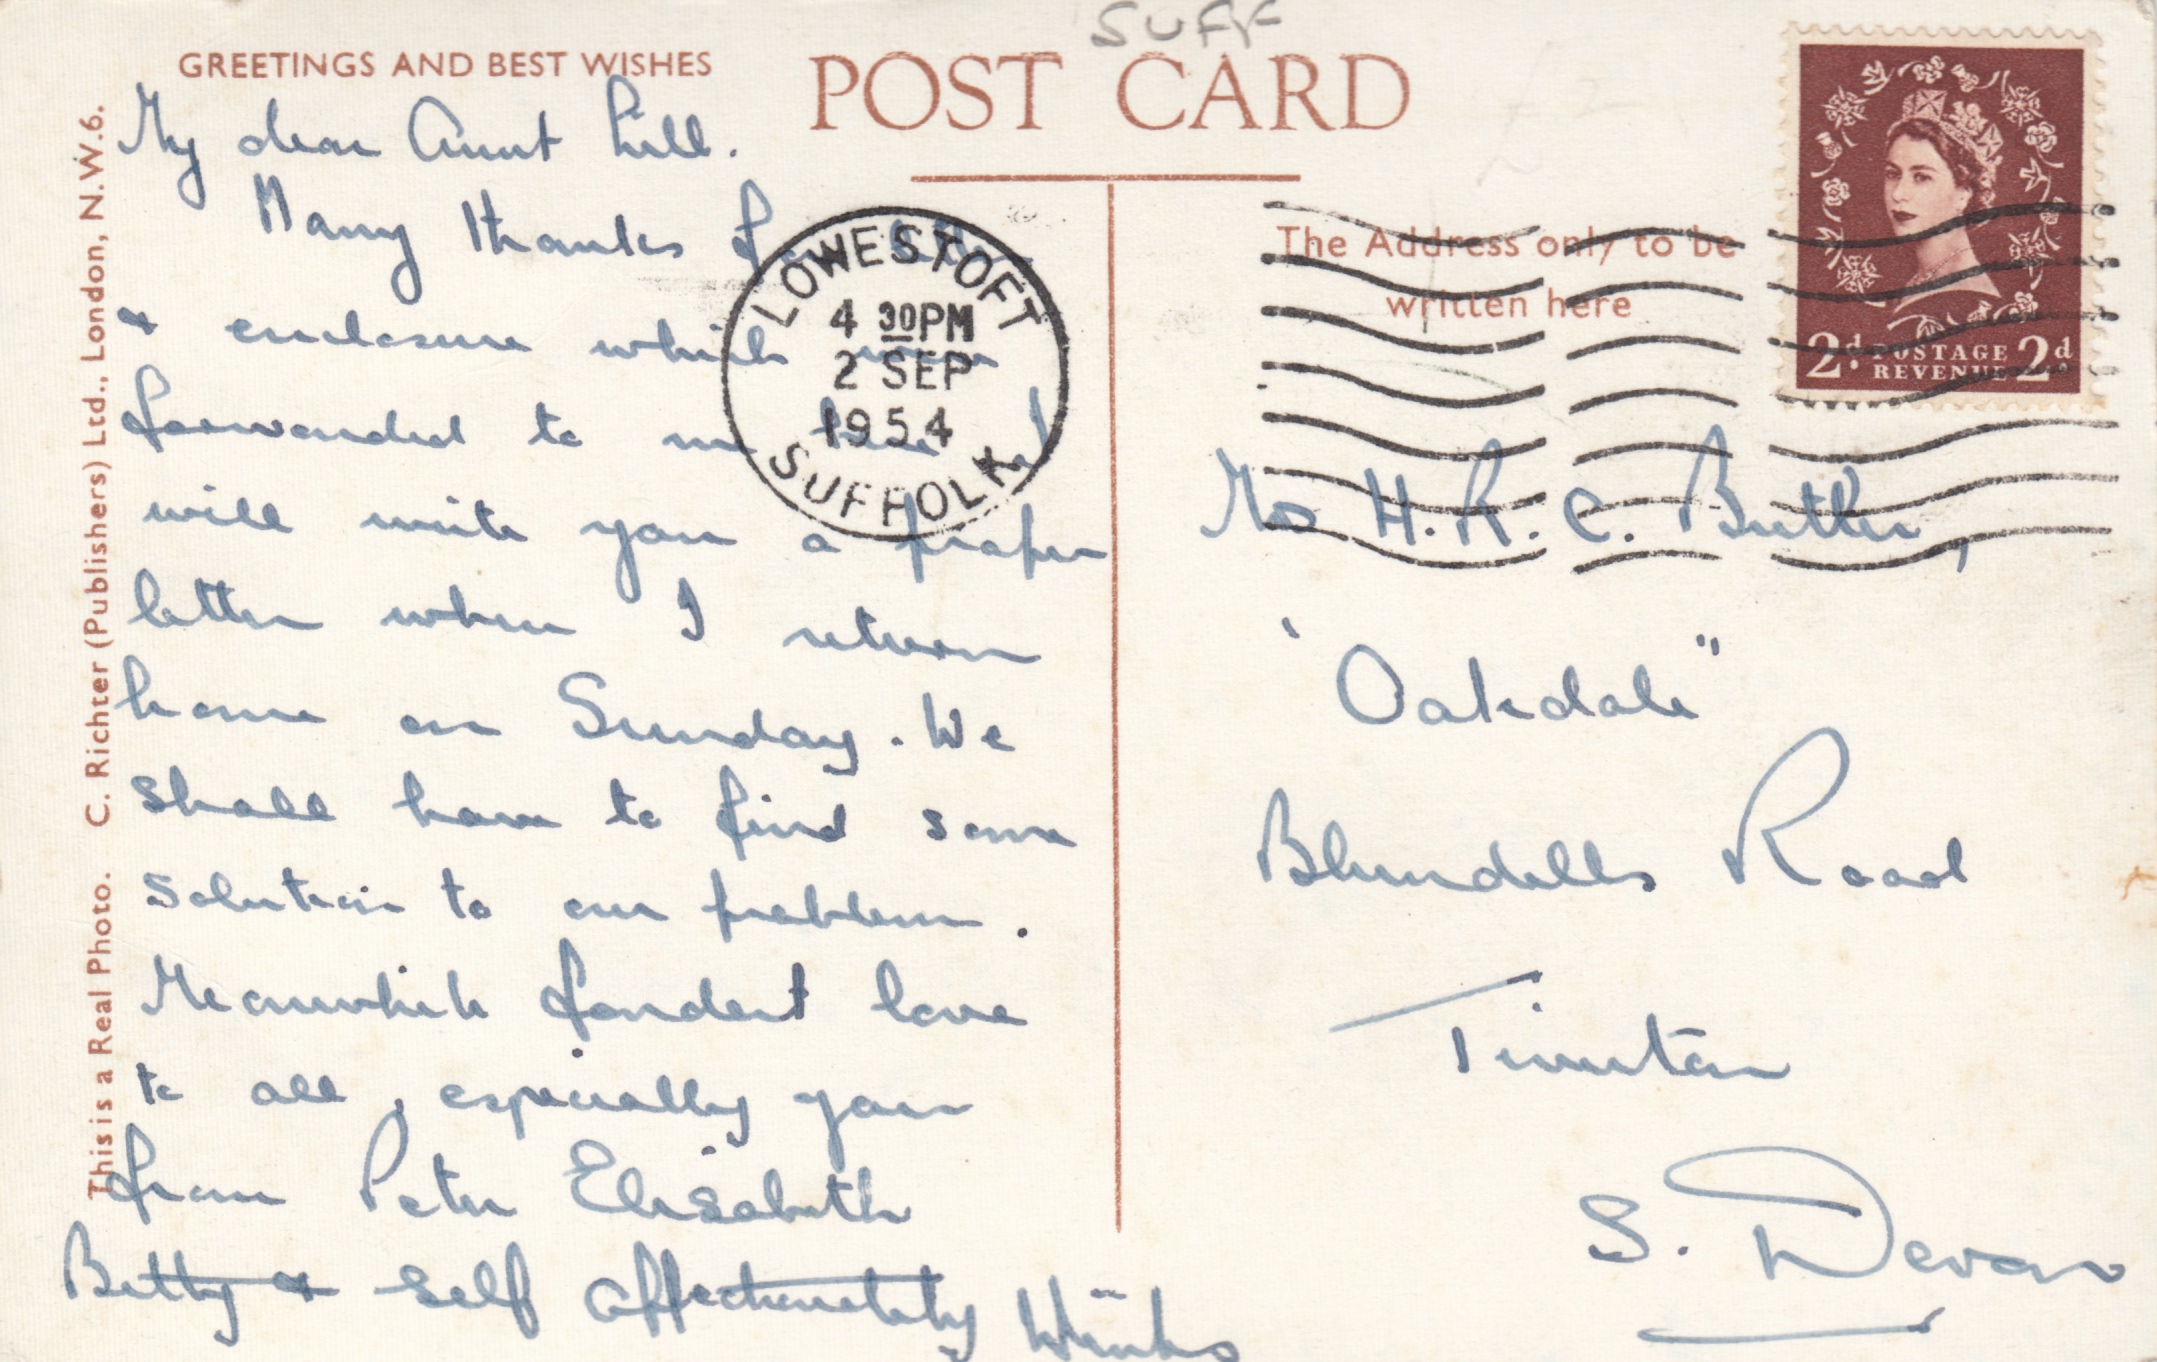 SUFF
GREETINGS AND BEST WISHES
POST CARD
My dear Aunt Lill.
Many thanks for letter
& enclosure which were
forwarded to me here. I
will write you a proper
letter when I return
home on Sunday. We
shall have to find some
solution to our problem.
Meanwhile fondest love
to all, especially you
from Peter Elisabeth
Betty & self affectionately
This is a Real Photo. C. Richter (Publishers) Ltd., London, N.W.6.
LOWESTOFT
4 30PM
2 SEP
1954
SUFFOLK
The Address only to be
written here
2d POSTAGE 2d
REVENUE
Mrs H. R. C. Butler,
"Oakdale"
Blundells Road
Tiverton
S. Devon